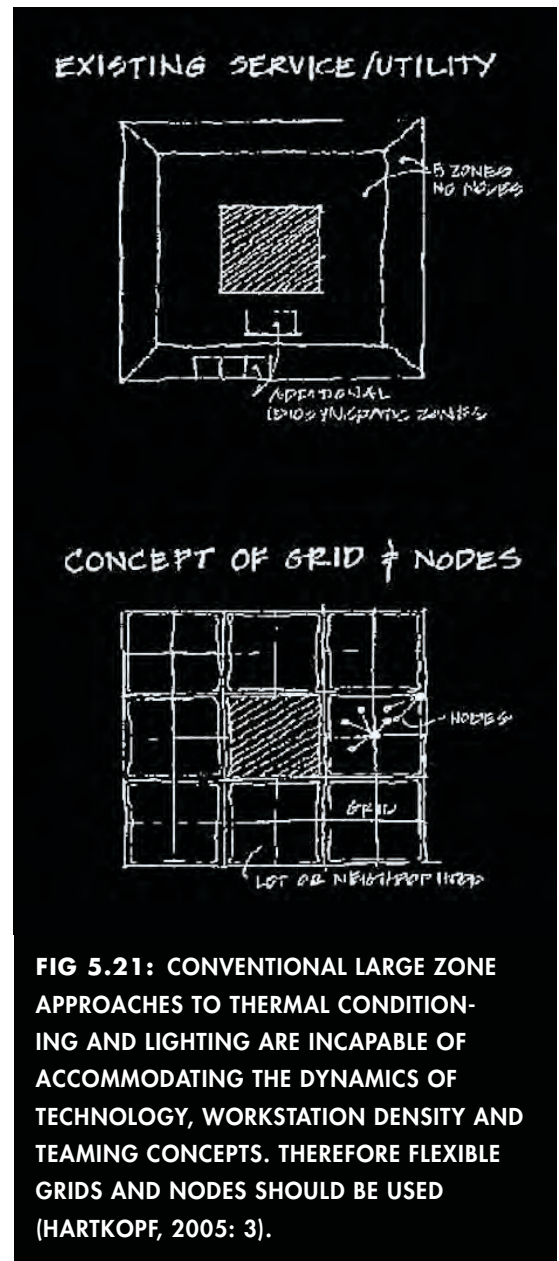 EXISTING SERVICE/UTILITY
5 ZONES
NO NODES
ADDITIONAL
IDIOSYNCRATIC ZONES
CONCEPT OF GRID & NODES
NODES
GRID
LOT OR NEIGHBORHOOD
FIG 5.21: CONVENTIONAL LARGE ZONE
APPROACHES TO THERMAL CONDITION-
ING AND LIGHTING ARE INCAPABLE OF
ACCOMMODATING THE DYNAMICS OF
TECHNOLOGY, WORKSTATION DENSITY AND
TEAMING CONCEPTS. THEREFORE FLEXIBLE
GRIDS AND NODES SHOULD BE USED
(HARTKOPF, 2005: 3).